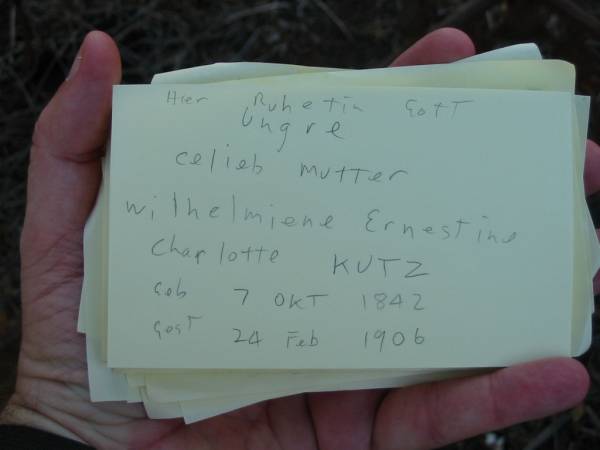 Hier Ruhetin Gott
Ungre
Celieb Mutter
Wilhelmiene Ernestine
Charlotte KUTZ
Geb 7 OKT 1842
Gest 24 Feb 1906